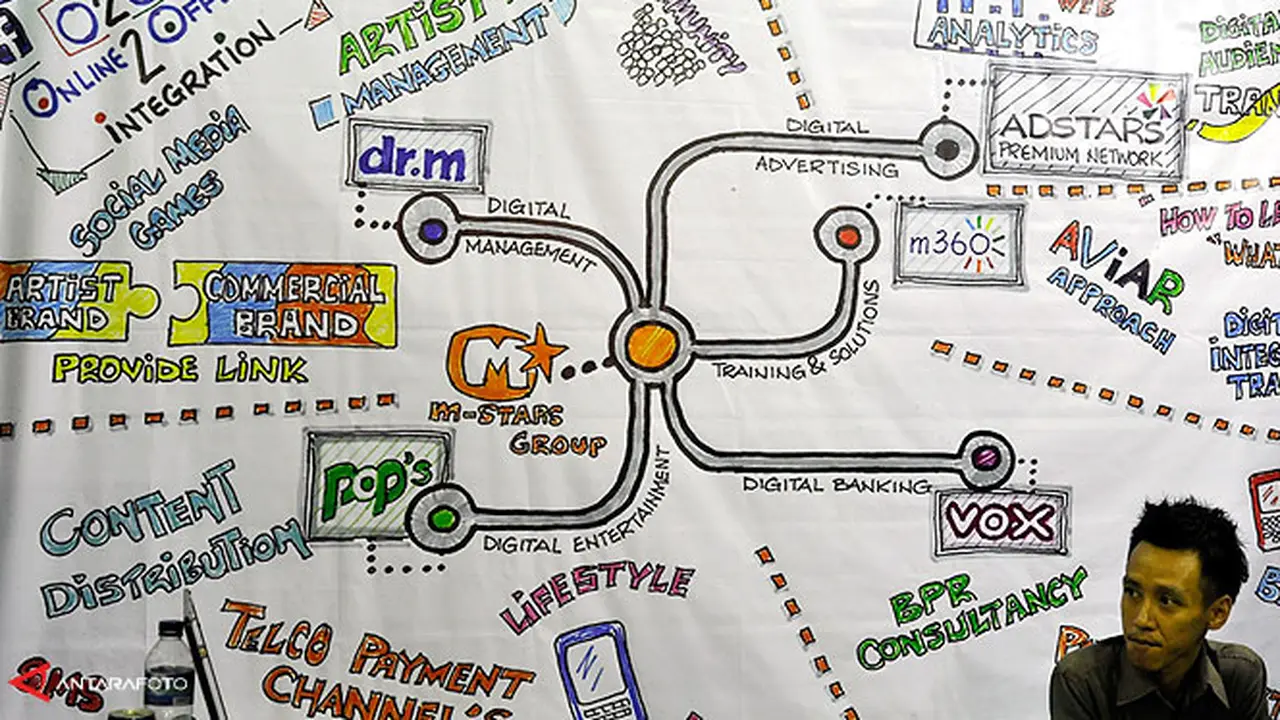 ONLINE 2 OFF
INTEGRATION
ARTIST
MANAGEMENT
WEB
ANALYTICS
SOCIAL MEDIA
GAMES
dr.m
DIGITAL
MANAGEMENT
DIGITAL
ADVERTISING
ADSTARS
PREMIUM NETWORK
m360
AViAR
APPROACH
HOW TO
ARTIST
BRAND
COMMERCIAL
BRAND
PROViDE LiNK
M-STARS
GROUP
TRAINING & SOLUTIONS
POP's
DIGITAL ENTERTAINMENT
DIGITAL BANKING
VOX
CONTENT
DISTRIBUTION
LiFESTYLE
BPR
CONSULTANCY
TELCO PAYMENT
CHANNEL'S
SMS
ANTARAFOTO